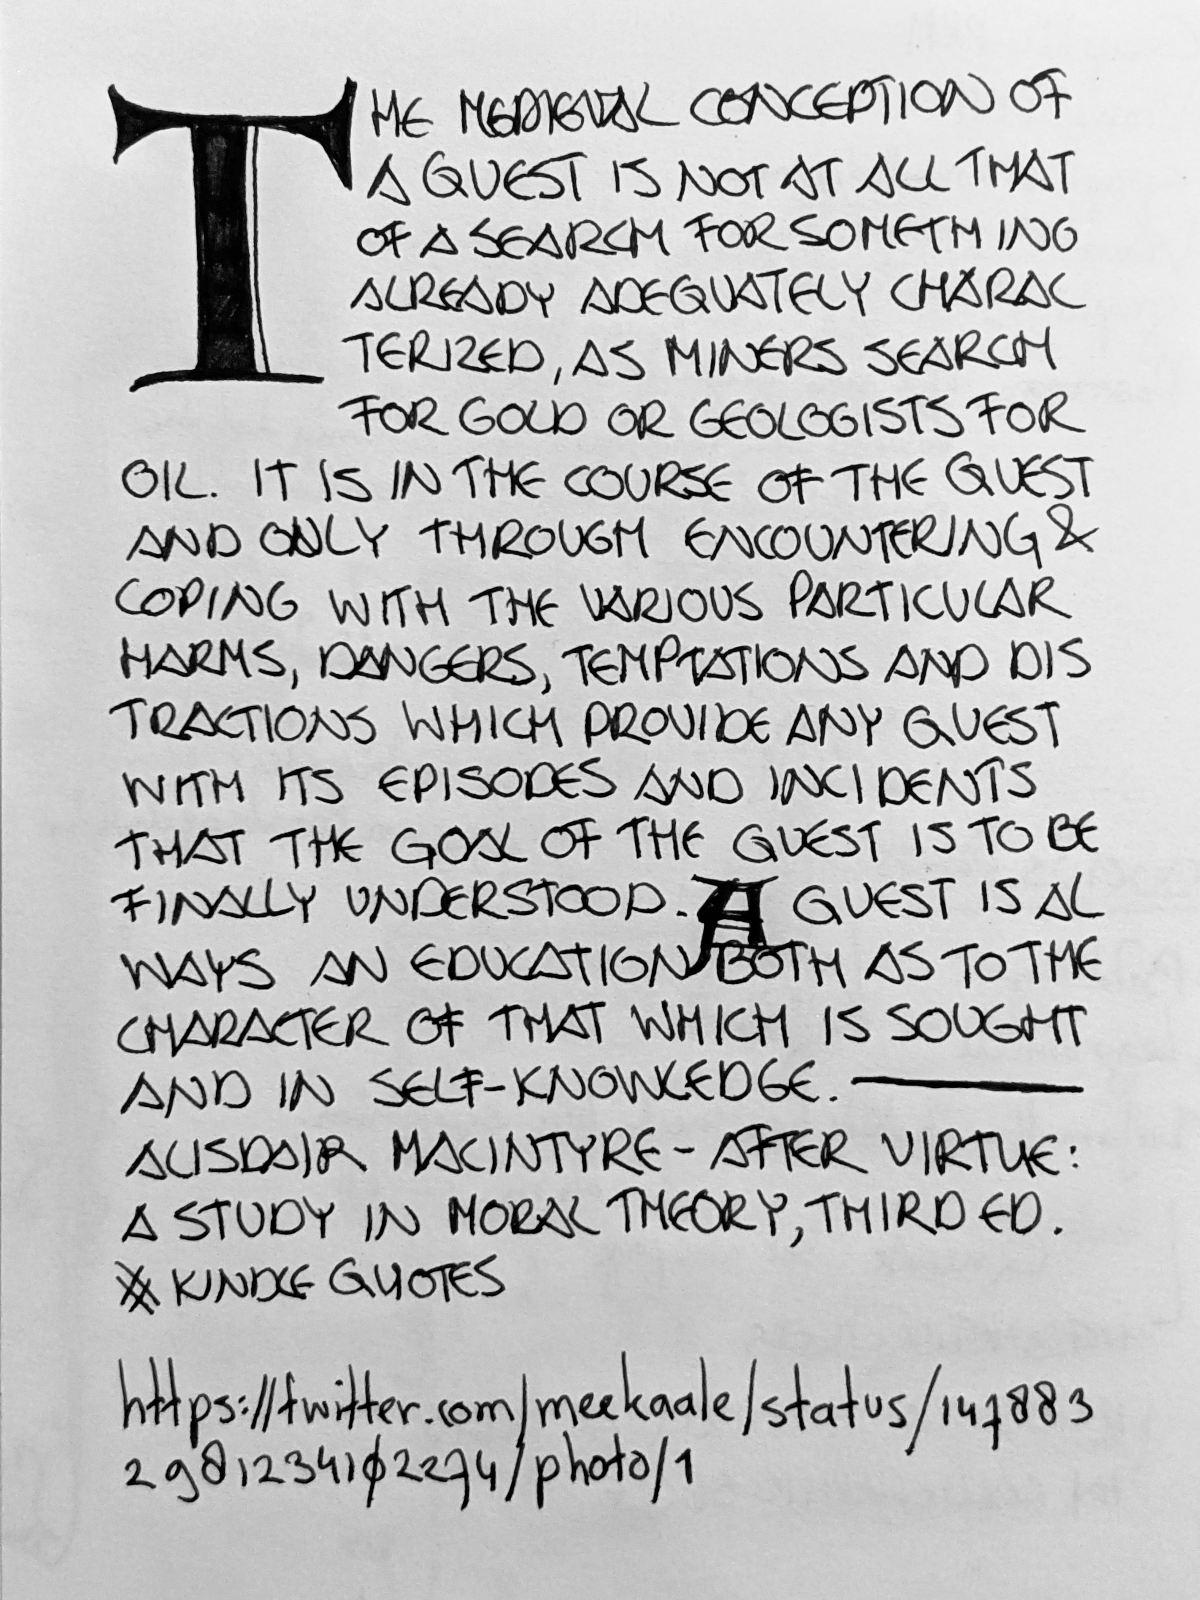 THE MEDIEVAL CONCEPTION OF
A QUEST IS NOT AT ALL THAT
OF A SEARCH FOR SOMETHING
ALREADY ADEQUATELY CHARAC
TERIZED, AS MINERS SEARCH
FOR GOLD OR GEOLOGISTS FOR
OIL. IT IS IN THE COURSE OF THE QUEST
AND ONLY THROUGH ENCOUNTERING &
COPING WITH THE VARIOUS PARTICULAR
HARMS, DANGERS, TEMPTATIONS AND DIS
TRACTIONS WHICH PROVIDE ANY QUEST
WITH ITS EPISODES AND INCIDENTS
THAT THE GOAL OF THE QUEST IS TO BE
FINALLY UNDERSTOOD. A QUEST IS AL
WAYS AN EDUCATION BOTH AS TO THE
CHARACTER OF THAT WHICH IS SOUGHT
AND IN SELF-KNOWLEDGE.
ALISDAIR MACINTYRE - AFTER VIRTUE:
A STUDY IN MORAL THEORY, THIRD ED.
# KINDLE QUOTES
https://twitter.com/meekaale/status/147883
2981234102274/photo/1